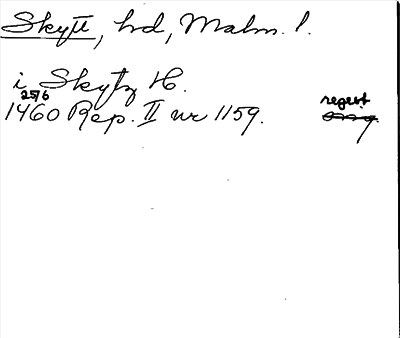 Skytt, hd, Malm. l.
i Skytz H.
25/6
1460 Rep. II nr 1159. regest